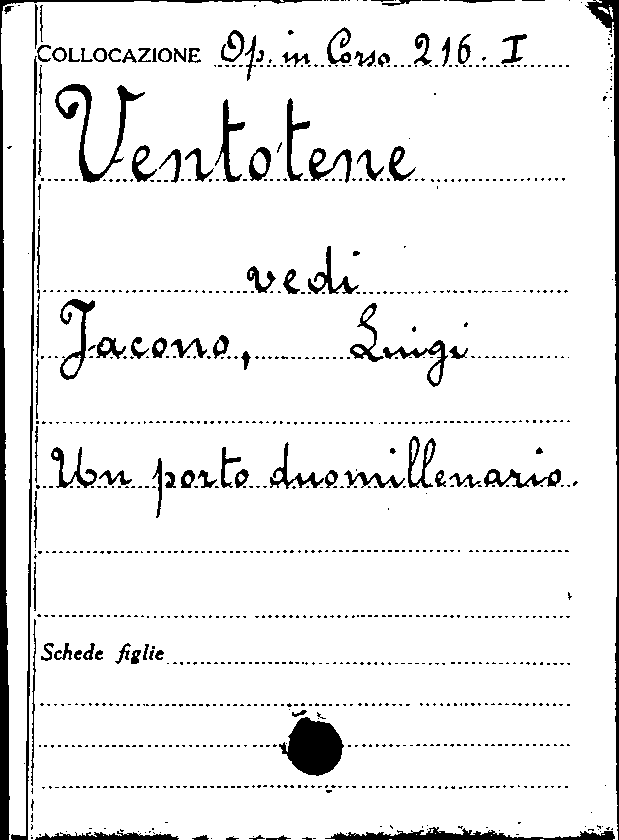 COLLOCAZIONE Op. in Corso 216. I
Ventotene
vedi
Jacono, Luigi
Un porto duomillenario.
Schede figlie